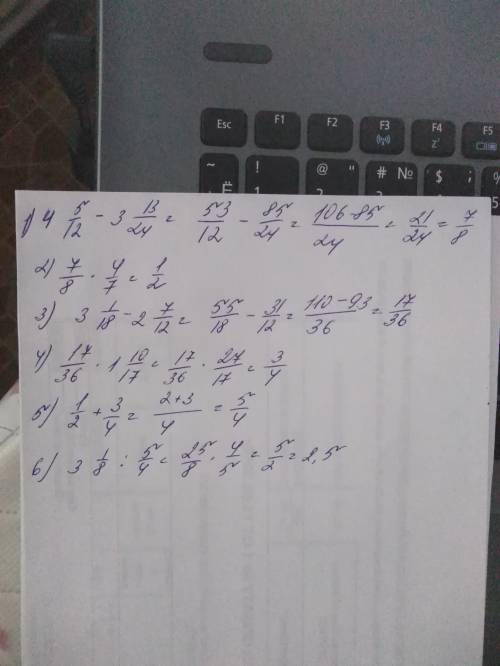 Esc F1 F2 F3 F4 F5
~ ! @ " # № $ ; %
Ё 1 2 3 4 5
1) 4 5/12 - 3 13/24 = 53/12 - 85/24 = 106-85/24 = 21/24 = 7/8
2) 7/8 · 4/7 = 1/2
3) 3 1/18 - 2 7/12 = 55/18 - 31/12 = 110-93/36 = 17/36
4) 17/36 · 1 10/17 = 17/36 · 27/17 = 3/4
5) 1/2 + 3/4 = 2+3/4 = 5/4
6) 3 1/8 : 5/4 = 25/8 · 4/5 = 5/2 = 2,5